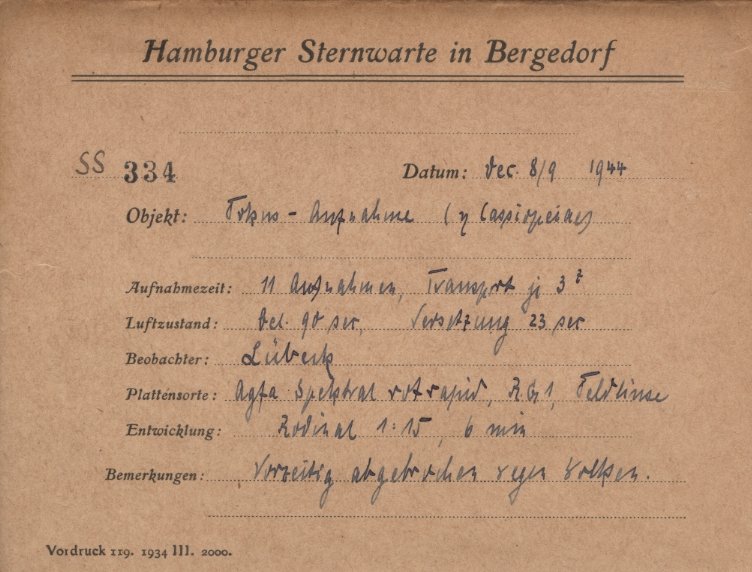 Hamburger Sternwarte in Bergedorf
SS 334 Datum: Dec. 8/9 1944
Objekt: Fokus - Aufnahme (η Cassiopeiae)
Aufnahmezeit: 11 Aufnahmen, Transport je 3
Luftzustand: Bel. 90 sec, Versetzung 23 sec
Beobachter: Lübeck
Plattensorte: Agfa Spektral rot rapid, R.G 1, Feldlinse
Entwicklung: Rodinal 1:15, 6 min
Bemerkungen: Vorzeitig abgebrochen wegen Wolken.
Vordruck 119. 1934 III. 2000.